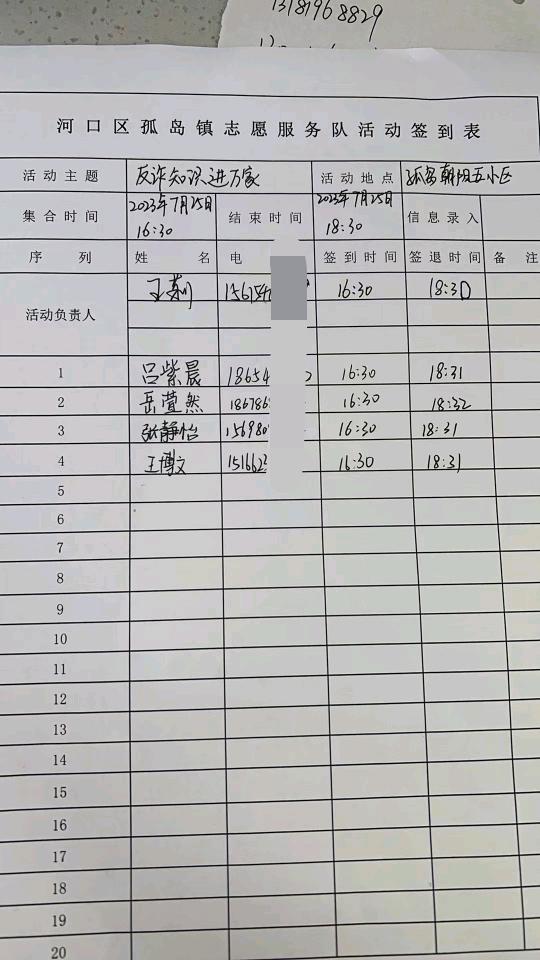 13181968829
河口区孤岛镇志愿服务队活动签到表
活动主题 反诈知识进万家 活动地点 孤岛朝阳五小区
集合时间 2023年7月25日 16:30 结束时间 2023年7月25日 18:30 信息录入
序列 姓名 电 签到时间 签退时间 备注
活动负责人 王 156754 16:30 18:30
1 吕紫晨 18654 2 16:30 18:31
2 岳萱然 186786 16:30 18:32
3 张静怡 156980 16:30 18:31
4 王博文 151662 16:30 18:31
5
6
7
8
9
10
11
12
13
14
15
16
17
18
19
20